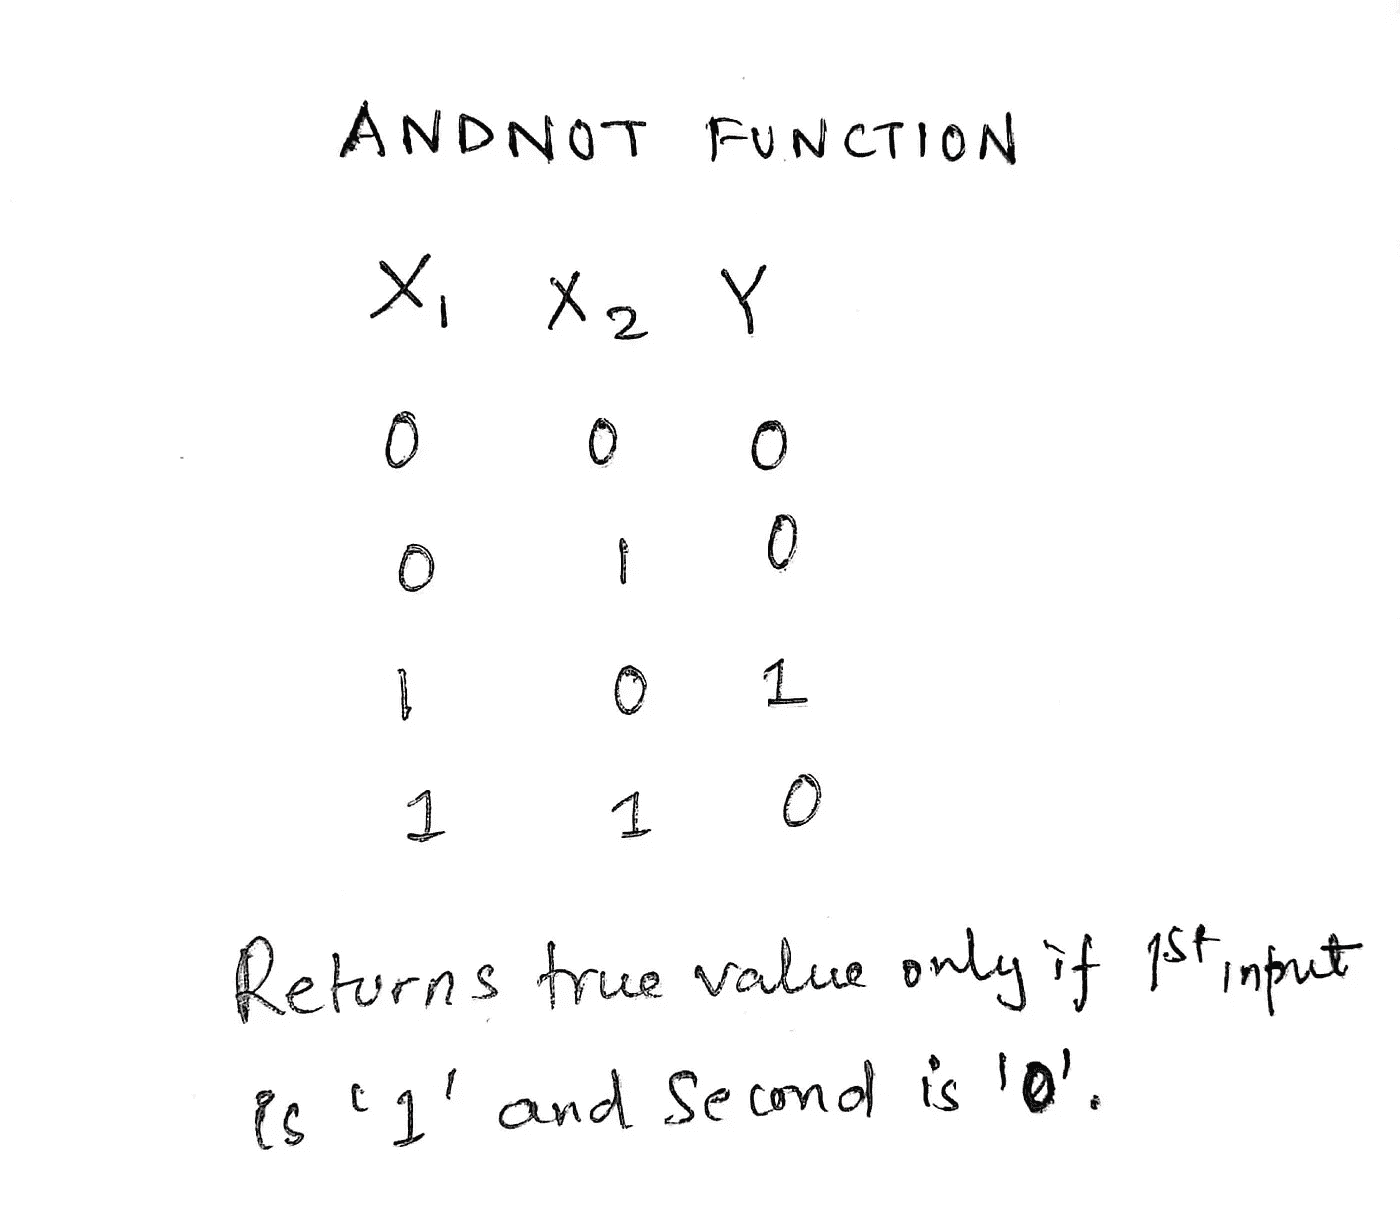 ANDNOT FUNCTION
X1 X2 Y
0 0 0
0 1 0
1 0 1
1 1 0
Returns true value only if 1st input
is '1' and Second is '0'.